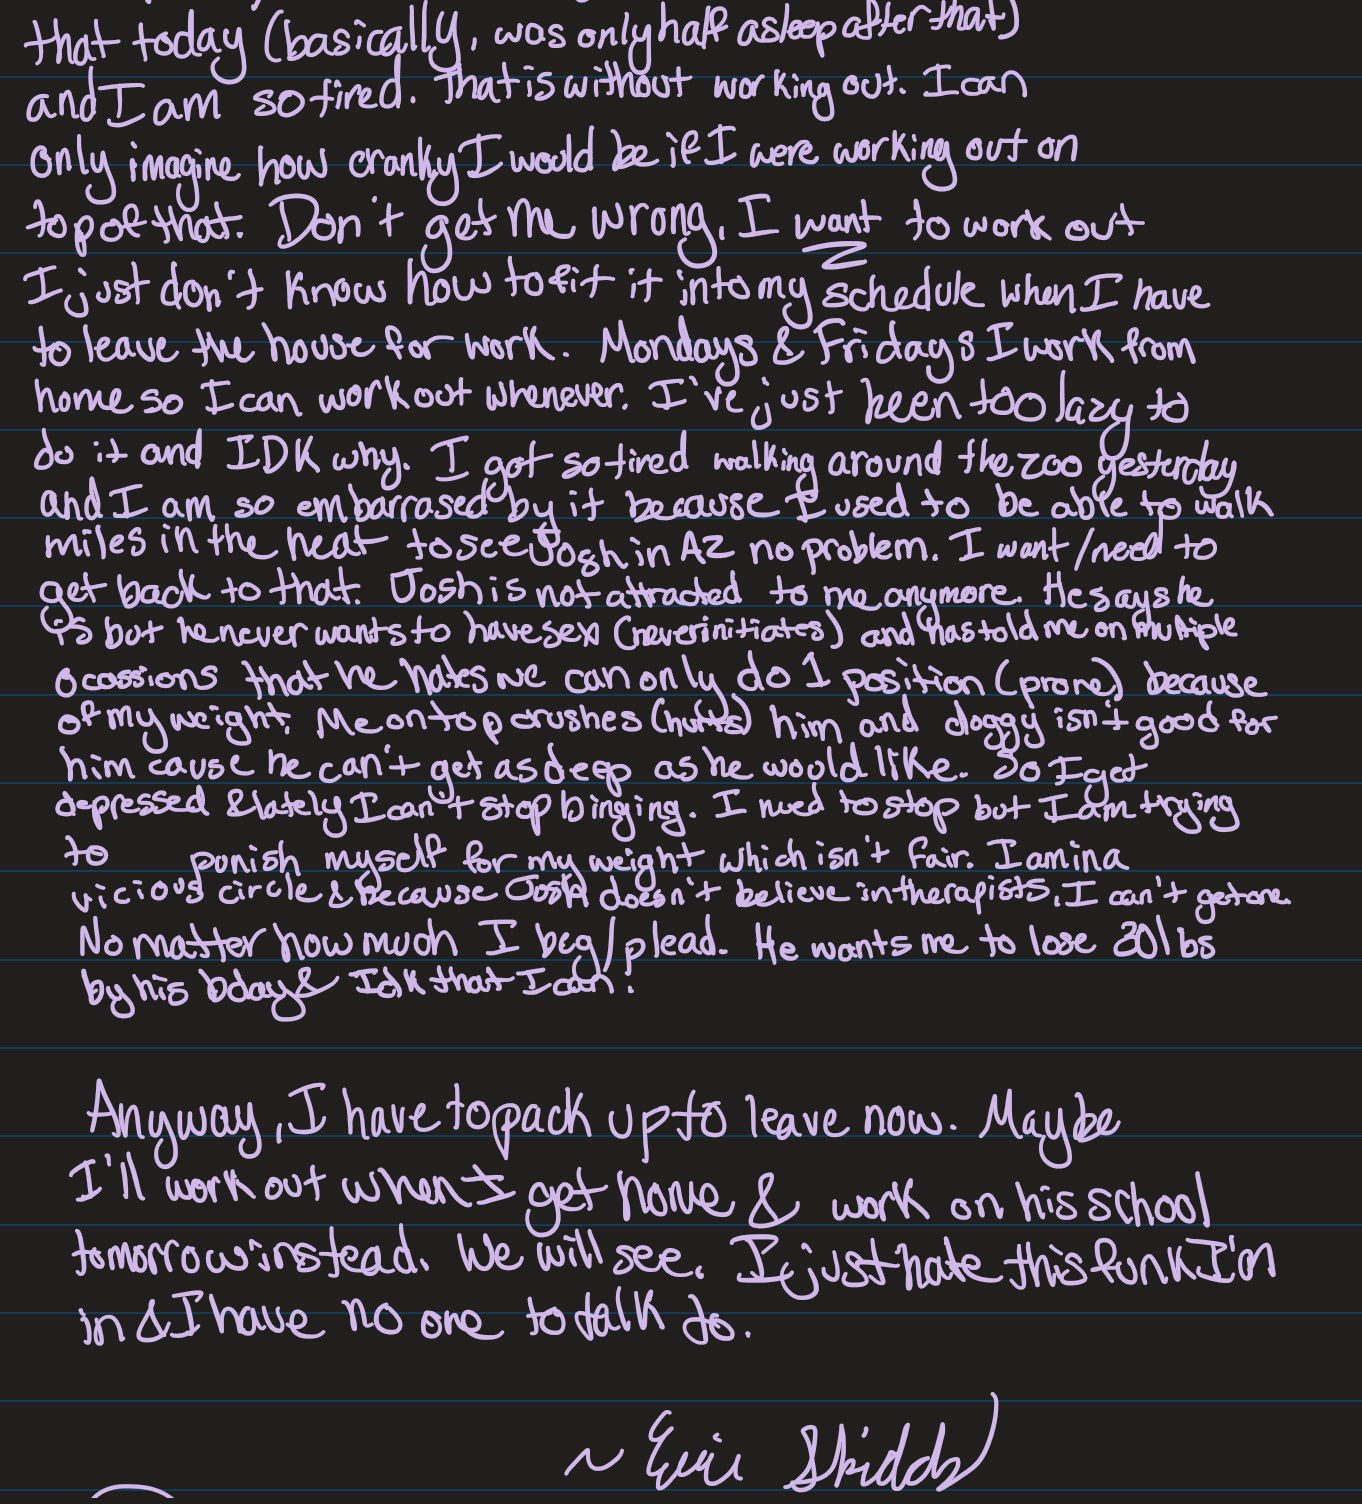 that today (basically, was only half asleep after that)
and I am so tired. That is without working out. I can
only imagine how cranky I would be if I were working out on
top of that. Don't get me wrong, I want to work out
I just don't know how to fit it into my schedule when I have
to leave the house for work. Mondays & Fridays I work from
home so I can work out whenever. I've just been too lazy to
do it and IDK why. I got so tired walking around the zoo yesterday
and I am so embarrased by it because I used to be able to walk
miles in the heat to see Josh in AZ no problem. I want/need to
get back to that. Josh is not attracted to me anymore. He says he
is but he never wants to have sex (never initiates) and has told me on multiple
ocassions that he hates we can only do 1 position (prone) because
of my weight. Me on top crushes (hurts) him and doggy isn't good for
him cause he can't get as deep as he would like. So I get
depressed & lately I can't stop binging. I need to stop but I am trying
to punish myself for my weight which isn't fair. I am in a
vicious circle & because Josh doesn't believe in therapists, I can't get one.
No matter how much I beg/plead. He wants me to lose 20lbs
by his bday & Idk that I can!
Anyway, I have to pack up to leave now. Maybe
I'll work out when I get home & work on his school
tomorrow instead. We will see. I just hate this funk I'm
in & I have no one to talk to.
~